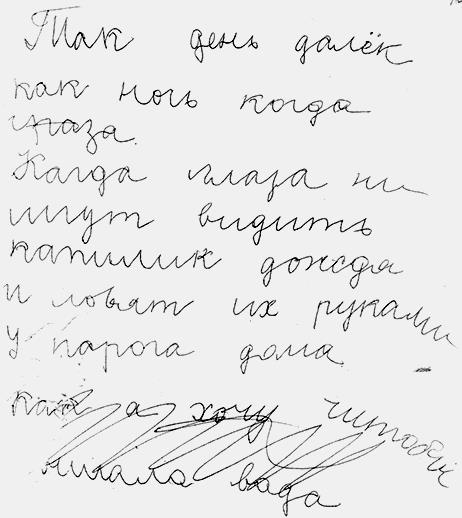 Так день далёк
как ночь когда
глаза.
Кагда глаза ни
могут видить
капилик дождя
и ловят их руками
у парога дома
как я хочу читобы
ничала вада